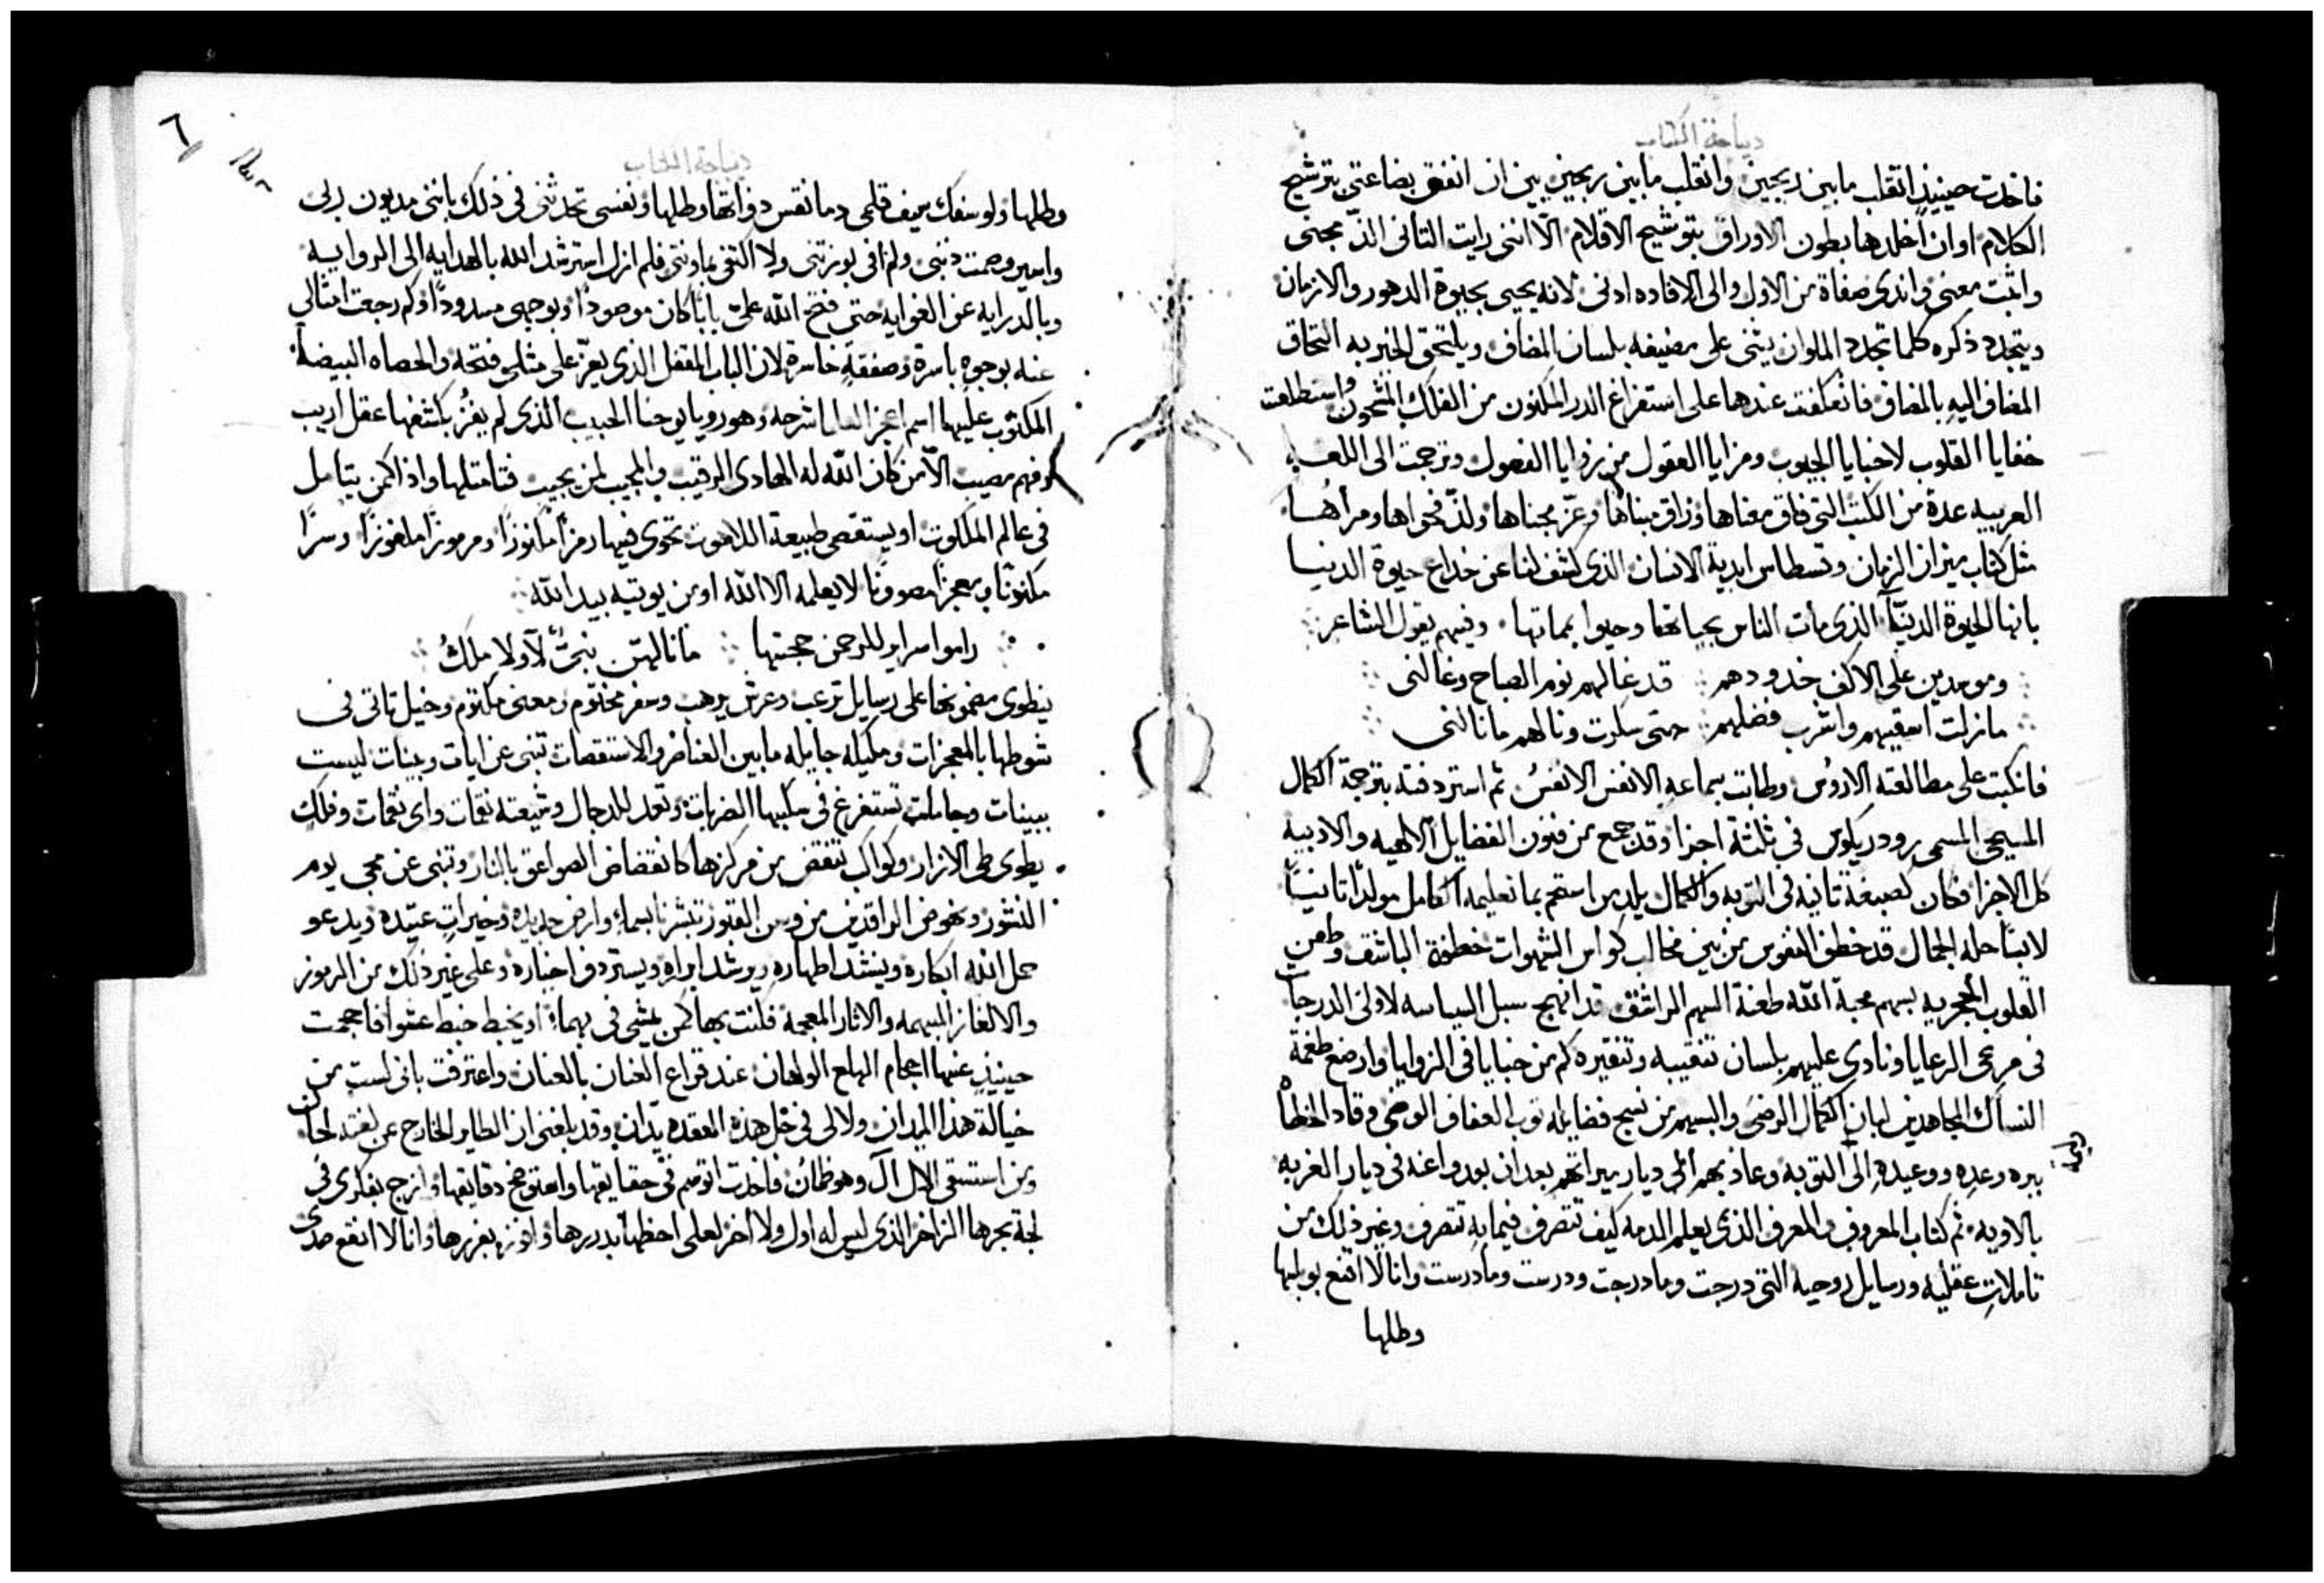 ديباجة الكتاب
فاخذت حينيذٍ اتقلب ما بين ريحين وانقلب ما بين ربحين بين ان انفق بضاعتي بترشيح
الكلام او ان اخلدها بطون الاوراق بتوشيح الاقلام الّا انني رايت الثاني الذّ مجنى
واثبت معنى واندى صفاة من الاول والى الافاده ادنى لانه يحيى بحيوة الدهور والازمان
ويتجدد ذكره كلما تجدد الملوان يثنى على مضيفه بلسان المضاف ويلتحق الخير به التحاق
المضاف اليهِ بالمضاف فانعكفت عندها على استفراغ الدر المكنون من الفلك المشحون واستطلعت
خفايا القلوب لاخبايا الجيوب ومزايا العقول من زوايا الفضول وترجمت الى اللغه
العربيه عدة من الكتب التي فاق معناها وراق مبناها وعزّ مجناها ولذّ فحواها ومرآها
مثل كتاب ميزان الزمان وقسطاس ابدية الانسان الذي كشف لنا عن خداع حيوة الدنيا
بانها الحيوة الدنيّا الذي مات الناس بحياتها وحيوا بمماتها وفيهم يقول الشاعر
وموسدين على الاكف خدودهم قد غالهم نوم الصباح وغالني
ما زلت اسقيهم واشرب فضلهم حتى سكرت ونالهم ما نالني
فانكبت على مطالعته الاروُس وطابت بسماعهِ الانفس الانفسُ ثم استردفته بترجمة الكمال
المسيحي المسمى رودريكوس في ثلثة اجزا وقد جمع من فنون الفضايل الالهيه والادبيه
كل الاجزا فكان كصبغة ثانيه في التوبه والكمال يلد من اسقم بما تعليمه الكامل مولداً ثانيّاً
لابسًا حلة الجمال قد خطف النفوس من بين مخالب كواسر الشهوات خطفة الباشق وطعن
القلوب الحجريه بسهم محبة الله طعنة السهم الراشق قد انهج سبل السياسه لاولى الدرجات
في مرعى الرعايا ونادى عليهم بلسان تنقيبه وتنقيره كم من خبايا في الزوايا وارضع طغمة
النساك المجاهدين لبان الكمال الرضى والبسهم من نسج فضايله ثوب العفاف الوضى وقاد الخطاه
ببره وعده ووعيده الى التوبه وعاد بهم الى ديار ميراثهم بعد ان بعدوا عنه في ديار الغربه
بالاوبه ثم كتاب المعروف والمعرف الذي يعلم الذمه كيف تتصرف فيما به تتصرف وغير ذلك من
تاملات عقليه ورسايل روحيه التي درجت وما درجت ودرست وما درست وانا لا اقنع بوبلها
وطلها
ديباجة الكتاب
٦
وطلها ولو سفك سيف قلمي دما نقس دواتها وطلها ونفسي تحدثني في ذلك بانني مديون لربي
واسير وصمت ذنبي ولم افي بوزنتي ولا اكتفى بماونتي فلم ازل استرشد الله بالهدايه الى الروايه
وبالدرايه عن الغوايه حتى فتح الله عليّ بابًا كان موصودًا وبوجهي مسدودًا وكم رجعت امثالي
عنه بوجوهٍ باسرة وصفقةٍ خاسرة لان الباب المقفل الذي يعزّ على مثلي فتحه والحصاه البيضا
المكتوب عليها اسم اعجز العالم شرحه وهو رويا يوحنا الحبيب الذي لم يفُز بكشفها عقل اريب
وفهم مصيب الّا من كان الله له الهادي الرقيب والمجيب لمن يجيب فتاملتها واذا كمن يتامل
في عالم الملكوت او يستقصى طبيعة اللاهوت تحوى فيها رمزاً مكنوزاً ومرموزاً ملغوزاً وسرًا
مكنونًا ومعجزاً مصونًا لا يعلمه الا الله او من يوتيه بيد الله
راموا اسرارٍ للرحمن حجبتها ما نالهن نبيٌّ لا ولا ملكُ
ينطوى مضمونها على رسايل ترعب وعرش يرهب وسفر مختوم ومعنى مكتوم وخيل تاتى في
شوطها بالمعجزات ومليكه جايله ما بين العناصر والاستقصات تنبى عن ايات وبينات ليست
ببينات وجامات تستفرغ في سكبها الضربات وتعد للدجال وشيعته نقمات واى نقمات وفلك
يطوى طى الازار وكواكب تنقض من مركزها كانقضاض الصواعق بالنار وتنبى عن مجى يوم
النشور ونهوض الراقدين من رمس القبور تبشرنا بسماءٍ وارض جديدة وخيرات عتيده ويدعو
حمل الله ابكاره وينشد اطهاره ويرشد ابراره ويستردف اخباره وعلى غير ذلك من الرموز
والالغاز المبهمه والاثار المعجمه فكنت بها كمن يمشى في بهماءٍ او يخبط خبط عشوا فاحجمت
حينيذٍ عنها احجام الهلع الولهان عند قراع العنان بالعنان واعترفت بانى لست من
خيالة هذا الميدان ولا لى في حل هذه العقده يدان وقد بلغنى ان الطاير الخارج عن لغته لحان
ومن استسقى الال آل وهو ظمانُ فاخذت اتوسم في حقايقها واستوضح دقايقها وازج بفكرى في
لجة بحرها الزاخر الذي ليس له اول ولا اخر لعلى احظى بدررها وافوز بغررها وانا لا انقع صدى